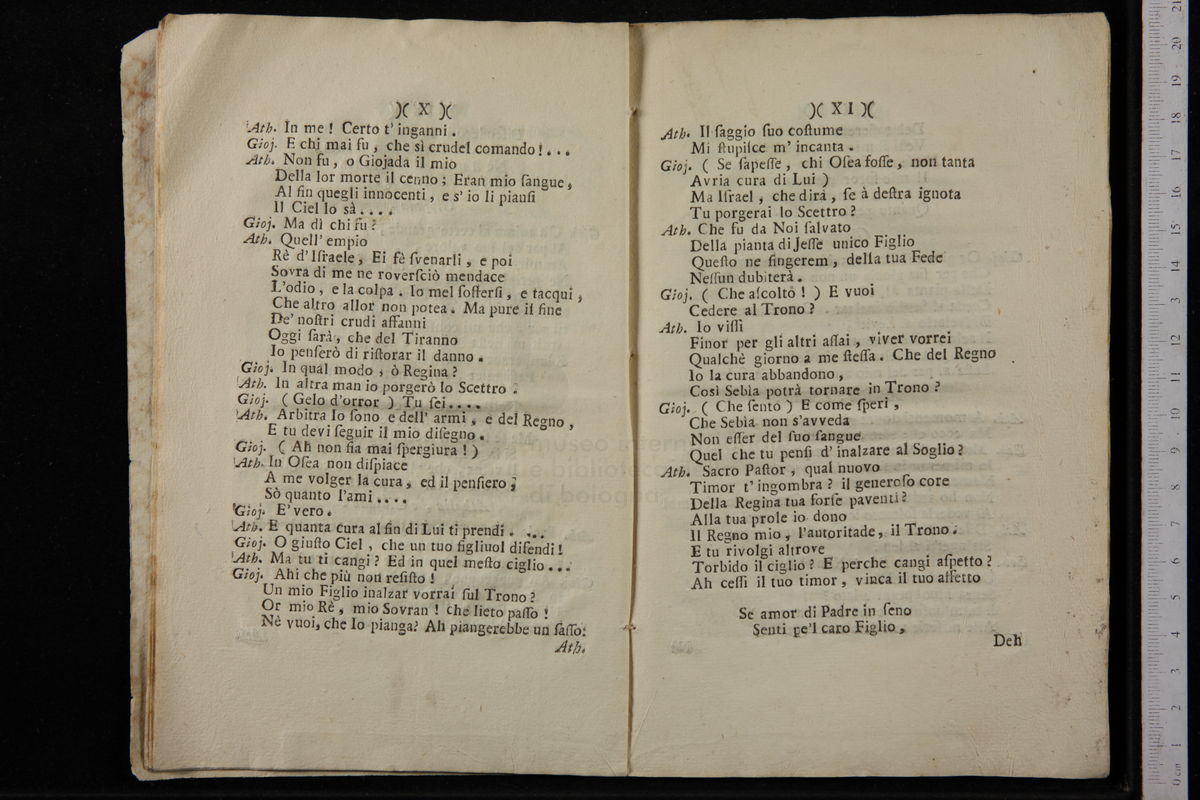 )( X )(
Ath. In me ! Certo t' inganni .
Gioj. E chi mai fu , che sì crudel comando ! . . .
Ath. Non fu , o Giojada il mio
Della lor morte il cenno ; Eran mio ſangue ,
Al fin quegli innocenti , e s' io li pianſi
Il Ciel lo sà . . . .
Gioj. Ma dì chi fu ?
Ath. Quell' empio
Rè d'Iſraele , Ei fè ſvenarli , e poi
Sovra di me ne roverſciò mendace
L'odio , e la colpa . Io mel ſofferſi , e tacqui ,
Che altro allor non potea . Ma pure il fine
De' noſtri crudi affanni
Oggi ſarà , che del Tiranno
Io penſerò di riſtorar il danno .
Gioj. In qual modo , ò Regina ?
Ath. In altra man io porgerò lo Scettro .
Gioj. ( Gelo d'orror ) Tu ſei . . . .
Ath. Arbitra Io ſono e dell' armi , e del Regno ,
E tu devi ſeguir il mio diſegno .
Gioj. ( Ah non fia mai ſpergiura ! )
Ath. In Oſea non diſpiace
A me volger la cura , ed il penſiero ;
Sò quanto l'ami . . . .
Gioj. E' vero .
Ath. E quanta cura al fin di Lui ti prendi . . . .
Gioj. O giuſto Ciel , che un tuo figliuol difendi !
Ath. Ma tu ti cangi ? Ed in quel meſto ciglio . . .
Gioj. Ahi che più non reſiſto !
Un mio Figlio inalzar vorrai ſul Trono ?
Or mio Rè , mio Sovran ! che lieto paſſo !
Nè vuoi, che Io pianga? Ah piangerebbe un ſaſſo.
Ath.
)( XI )(
Ath. Il ſaggio ſuo coſtume
Mi ſtupiſce m' incanta .
Gioj. ( Se ſapeſſe , chi Oſea foſſe , non tanta
Avria cura di Lui )
Ma Iſrael , che dirà , ſe à deſtra ignota
Tu porgerai lo Scettro ?
Ath. Che fu da Noi ſalvato
Della pianta di Jeſſe unico Figlio
Queſto ne fingerem , della tua Fede
Neſſun dubiterà .
Gioj. ( Che aſcoltò ! ) E vuoi
Cedere al Trono ?
Ath. Io viſſi
Finor per gli altri aſſai , viver vorrei
Qualchè giorno a me ſteſſa . Che del Regno
Io la cura abbandono ,
Così Sebìa potrà tornare in Trono ?
Gioj. ( Che ſento ) E come ſperi ,
Che Sebìa non s'avveda
Non eſſer del ſuo ſangue
Quel che tu penſi d' inalzare al Soglio ?
Ath. Sacro Paſtor , qual nuovo
Timor t' ingombra ? il generoſo core
Della Regina tua forſe paventi ?
Alla tua prole io dono
Il Regno mio , l'autoritade , il Trono .
E tu rivolgi altrove
Torbido il ciglio ? E perche cangi aſpetto ?
Ah ceſſi il tuo timor , vinca il tuo affetto
Se amor di Padre in ſeno
Senti pe'l caro Figlio ,
Deh
museo inter
e biblioteca
di bologna
0 cm 1 2 3 4 5 6 7 8 9 10 11 12 13 14 15 16 17 18 19 20 21